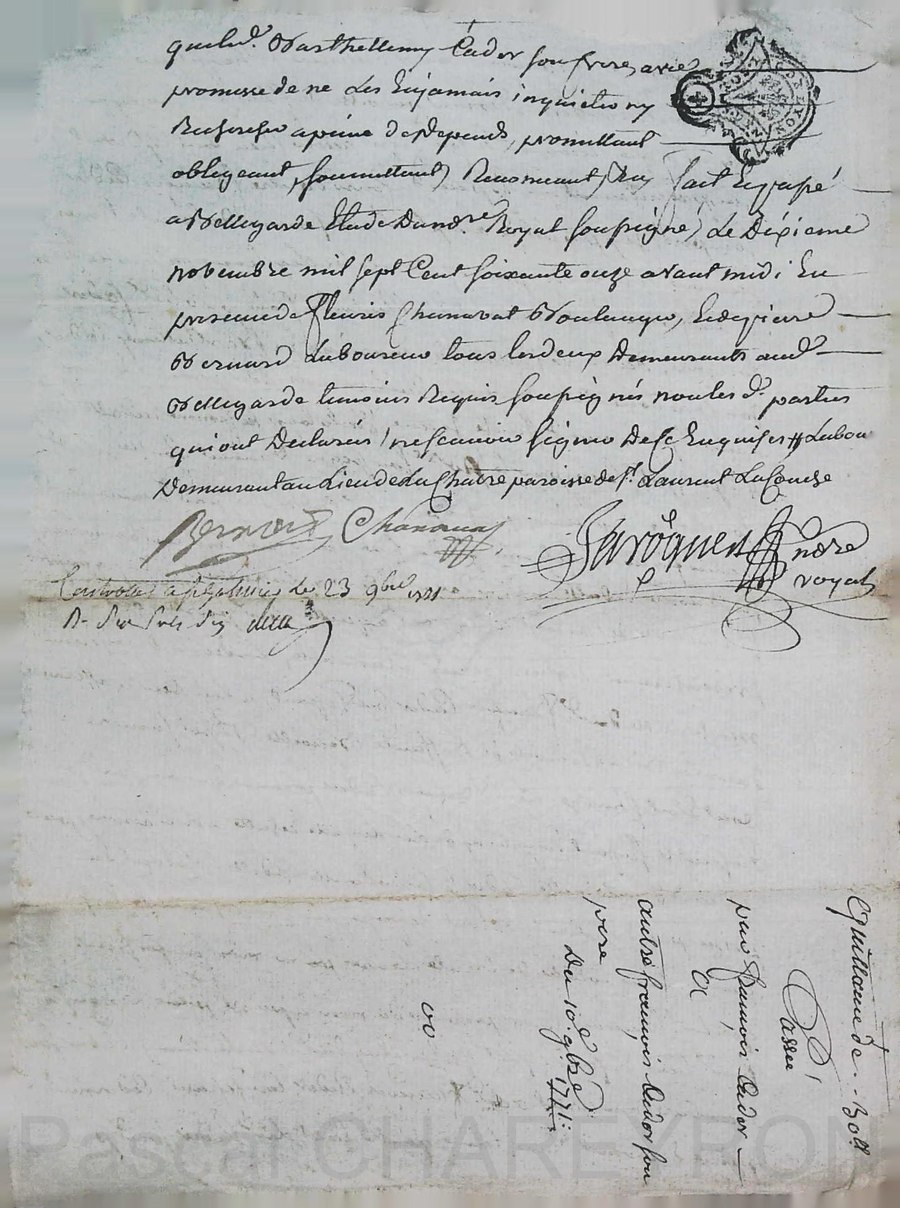 que lud. Barthellemy Cador son frere, avec
promesse de ne Les En jamais inquietter ny
Rechercher a peine de depends, promettant
obligeant, soumettant, Renonceant, fait Et passé
a Bellegarde Etude Du nore Royal soussigné, Le Dixieme
novembre mil sept Cent soixante onze avant midi En
presence de fleuris Chanavat Boulanger, Et de pierre
Bernard Laboureur tous les deux Demeurants aud.
Bellegarde temoins Requis soussignés non les d. parties
qui ont Declarés ne scavoir signer De ce Enquises // Labou
Demeurant au Lieu de La Chatre paroisse de St. Laurent La Conche
Bernard Chanavat
Jaroquen nore
royal
le 23 9bre 1771
R.
Quittance de .. 30ll
Passée
par françois Cador
a
autre françois Cador son
pere
Du 10e. 9bre 1771.
Pascal CHAREYRON